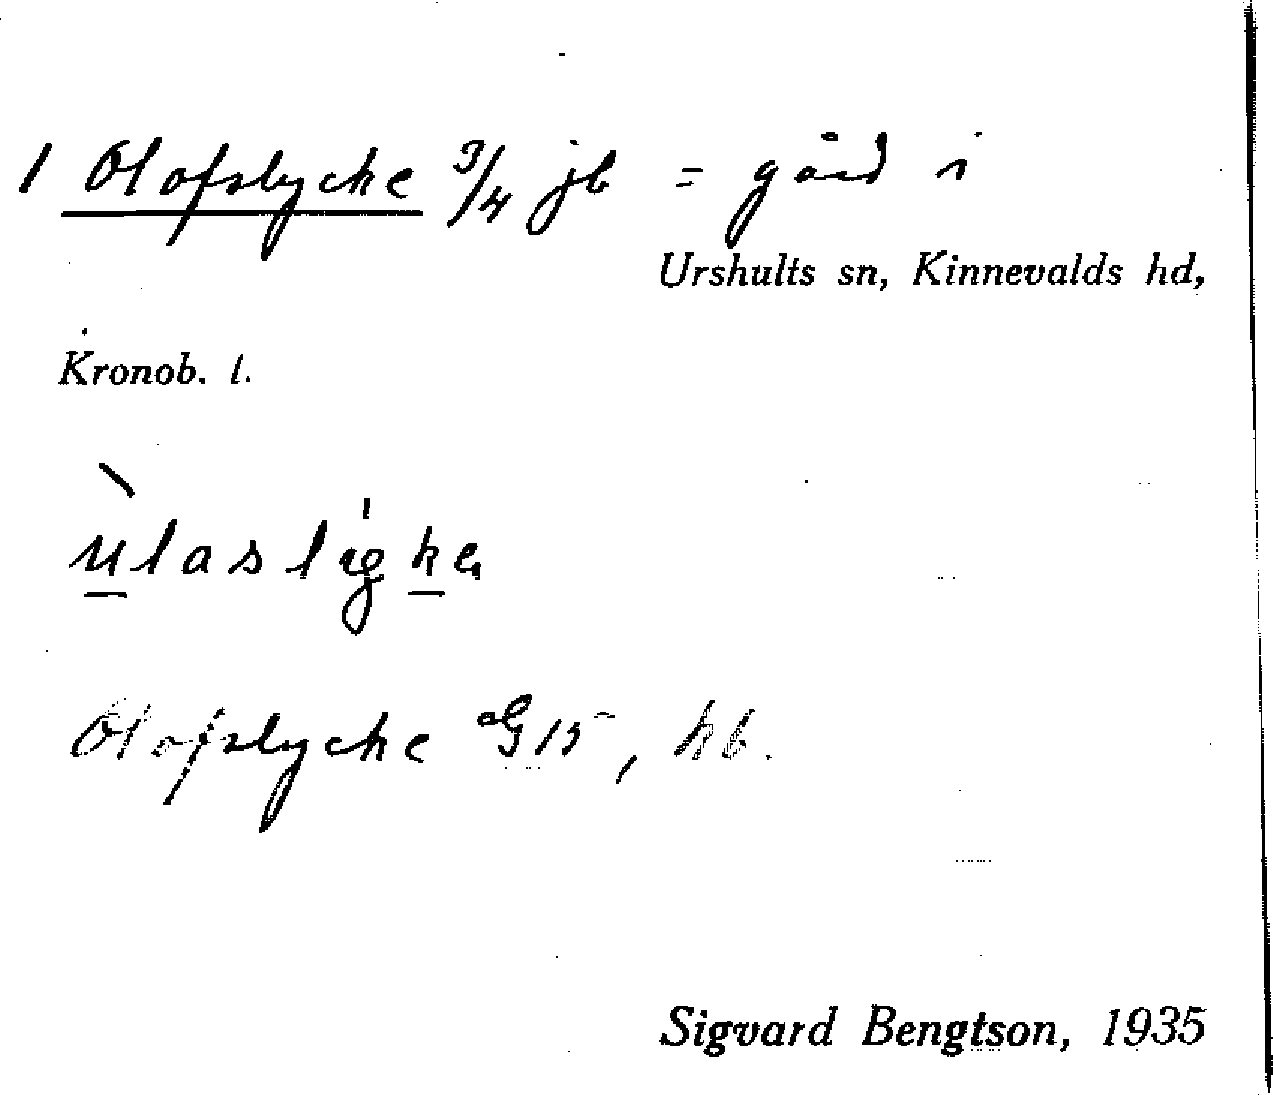 1 Olofslycke 3/4 jb = gård i
Urshults sn, Kinnevalds hd,
Kronob. l.
Olofslycke G 15, kb.
Sigvard Bengtson, 1935